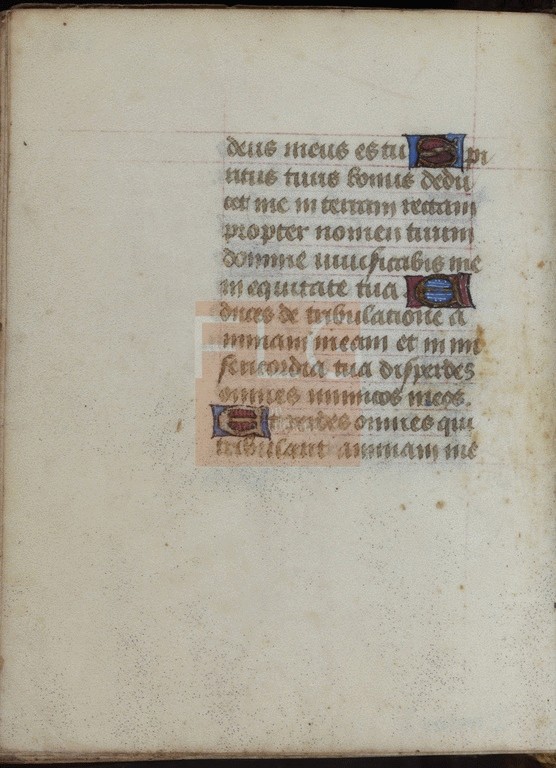 deus meus es tu Spi
ritus tuus bonus dedu
cet me in terram rectam
propter nomen tuum
domine vivificabis me
in equitate tua E
duces de tribulatione a
nimam meam et in mi
sericordia tua disperdes
omnes inimicos meos.
Et perdes omnes qui
tribulant animam me
FLG